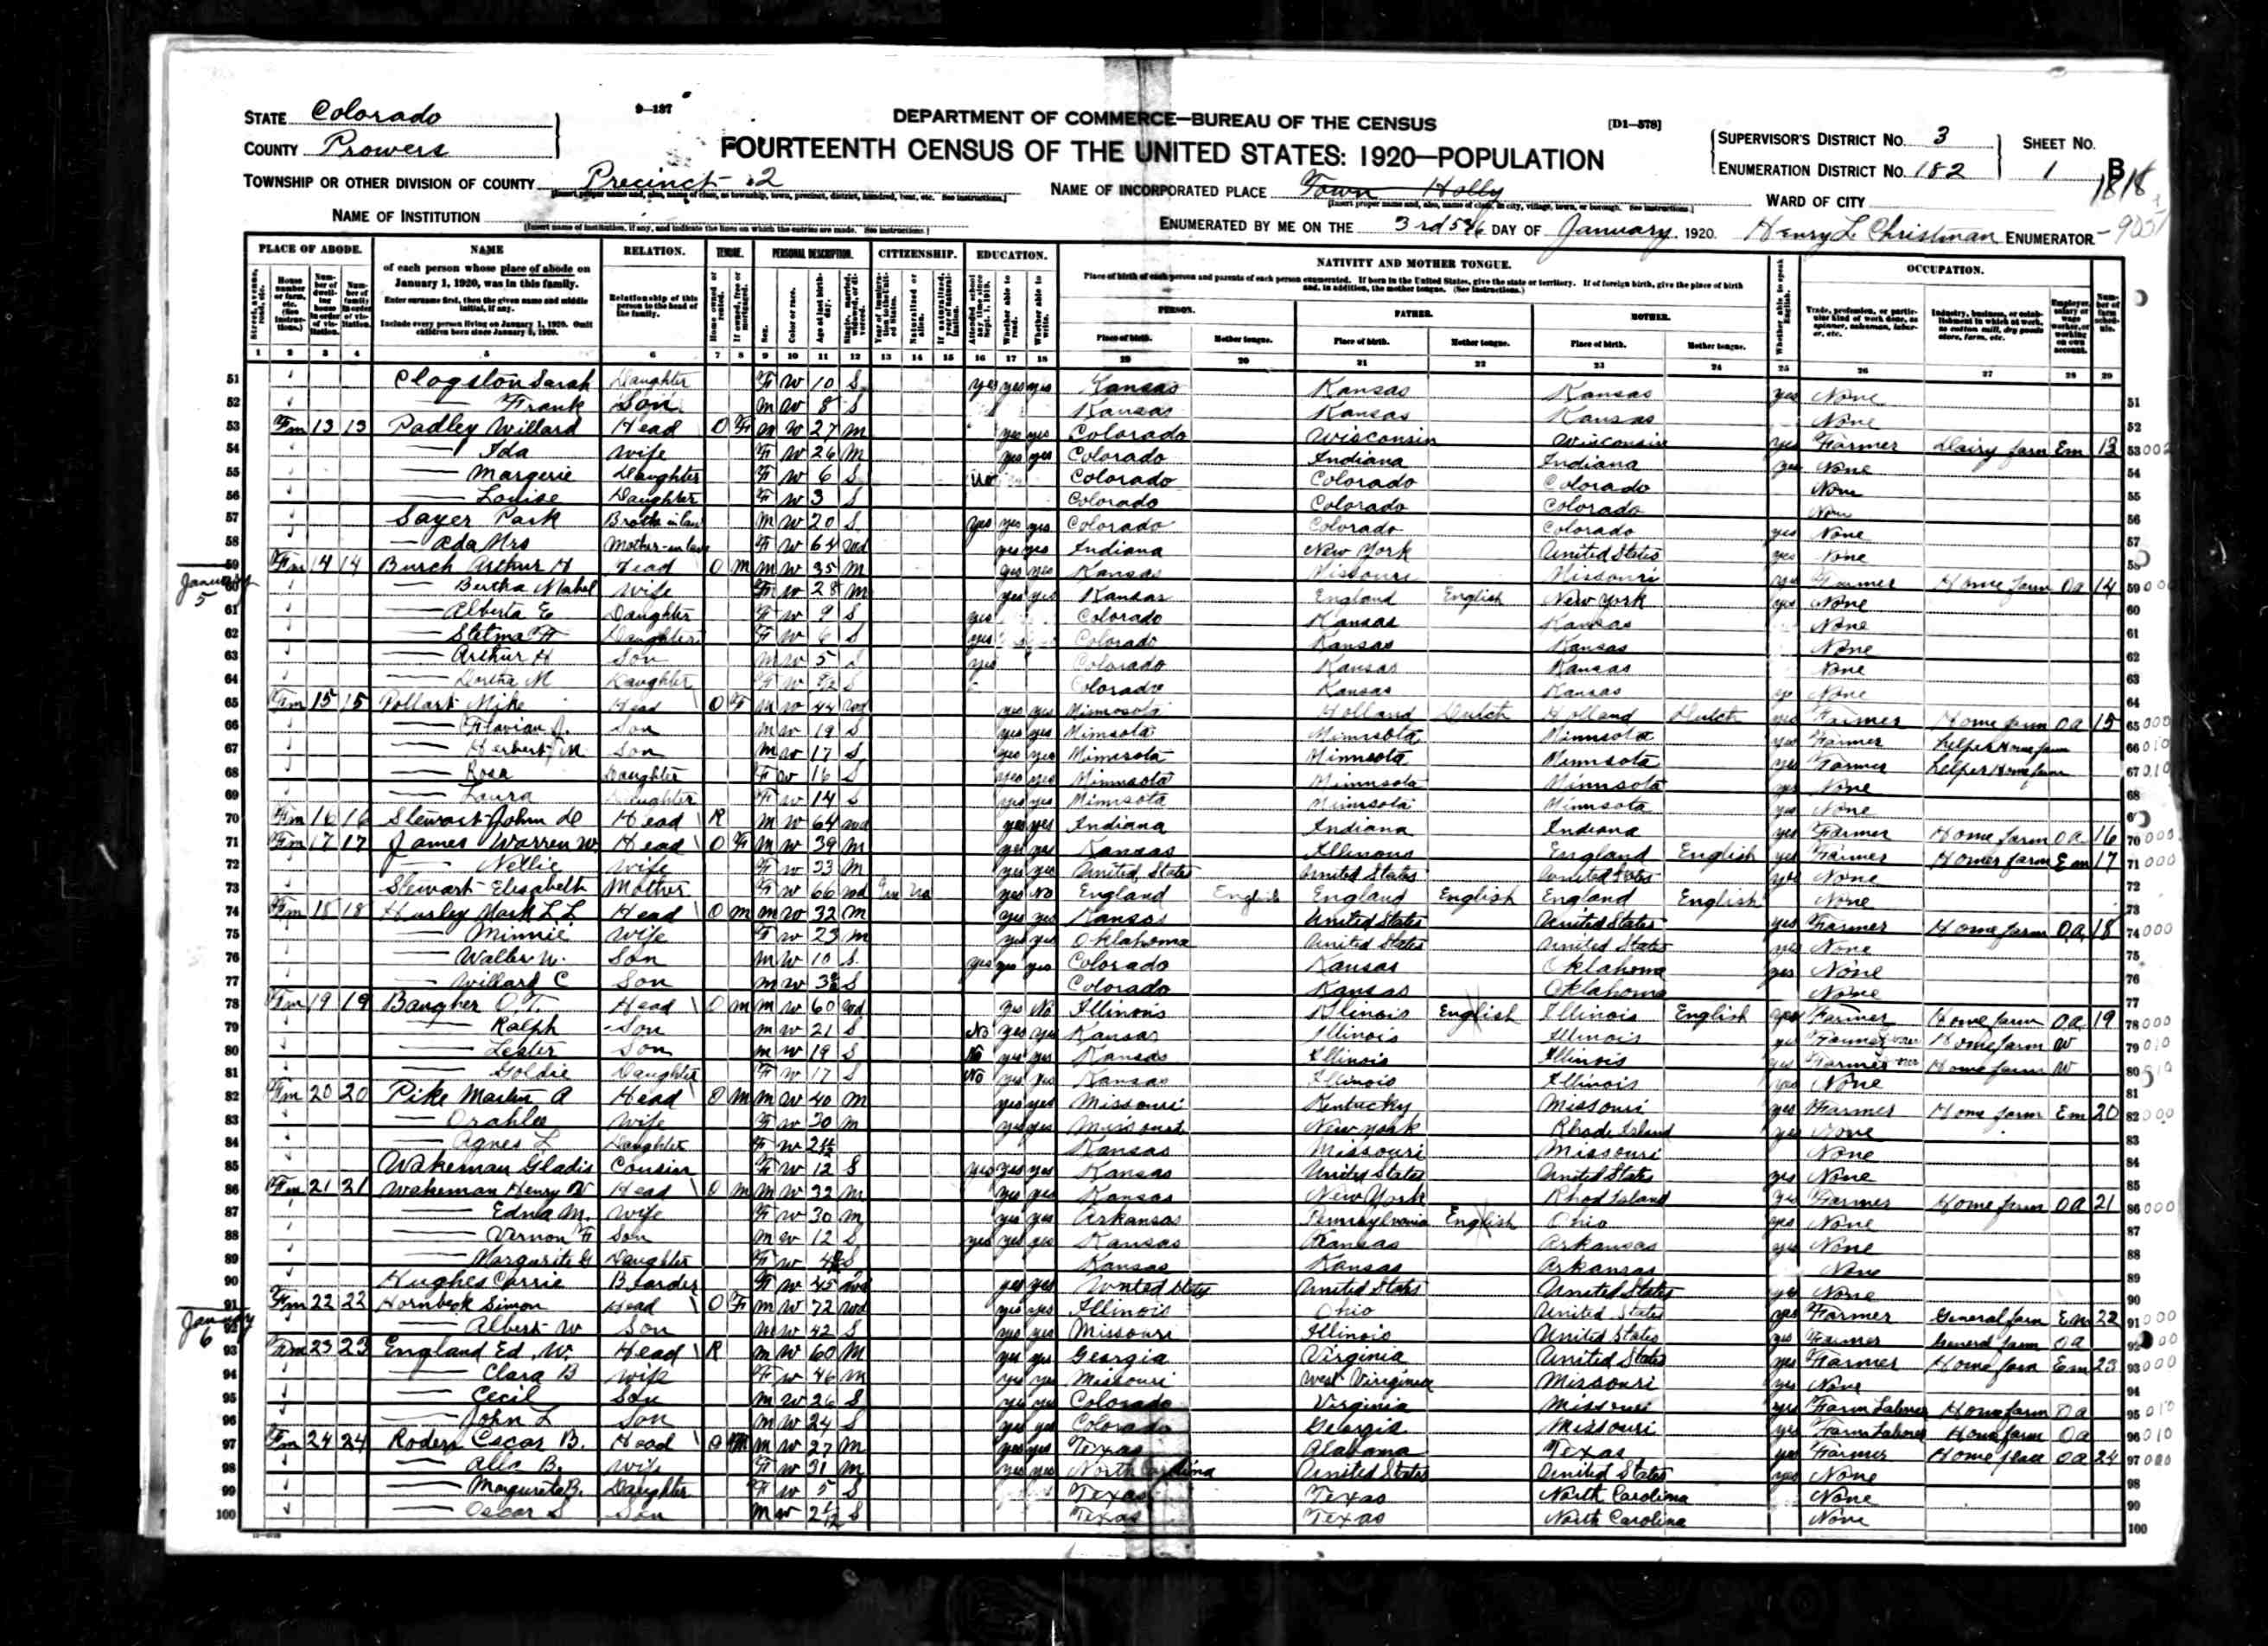 STATE Colorado
9—137
DEPARTMENT OF COMMERCE—BUREAU OF THE CENSUS
[D1—578]
COUNTY Prowers
FOURTEENTH CENSUS OF THE UNITED STATES: 1920—POPULATION
SUPERVISOR'S DISTRICT No. 3
SHEET No.
ENUMERATION DISTRICT No. 182
1 B
TOWNSHIP OR OTHER DIVISION OF COUNTY Precinct 2
NAME OF INCORPORATED PLACE Town Holly
WARD OF CITY
NAME OF INSTITUTION
ENUMERATED BY ME ON THE DAY OF January, 1920. Henry L Christman ENUMERATOR
PLACE OF ABODE. NAME RELATION. TENURE. PERSONAL DESCRIPTION. CITIZENSHIP. EDUCATION. NATIVITY AND MOTHER TONGUE. OCCUPATION.
of each person whose place of abode on January 1, 1920, was in this family.
Enter surname first, then the given name and middle initial, if any.
Include every person living on January 1, 1920. Omit children born since January 1, 1920.
Relationship of this person to the head of the family.
Place of birth of each person and parents of each person enumerated. If born in the United States, give the state or territory. If of foreign birth, give the place of birth and, in addition, the mother tongue. (See Instructions.)
PERSON. FATHER. MOTHER.
Place of birth. Mother tongue. Place of birth. Mother tongue. Place of birth. Mother tongue.
1 2 3 4 5 6 7 8 9 10 11 12 13 14 15 16 17 18 19 20 21 22 23 24 25 26 27 28 29
51 Clogston Sarah Daughter F W 10 S yes yes yes Kansas Kansas Kansas yes None
52 Frank Son M W 8 S Kansas Kansas Kansas None
53 Fm 13 13 Padley Willard Head O F M W 27 M yes yes Colorado Wisconsin Wisconsin yes Farmer Dairy farm Em 13
54 Ida Wife F W 26 M yes yes Colorado Indiana Indiana yes None
55 Margerie Daughter F W 6 S no Colorado Colorado Colorado None
56 Louise Daughter F W 3 S Colorado Colorado Colorado None
57 Sayer Park Brother in law M W 20 S yes yes yes Colorado Colorado Colorado yes None
58 Ada Mrs Mother-in law F W 64 wd yes yes Indiana New York United States yes None
59 Fm 14 14 Burch Arthur H Head O M M W 35 M yes yes Kansas Missouri Missouri yes Farmer Home farm Oa 14
January 5
60 Bertha Mabel Wife F W 28 M yes yes Kansas England English New York yes None
61 Alberta E Daughter F W 9 S yes Colorado Kansas Kansas None
62 Daughter F W 6 S yes Colorado Kansas Kansas None
63 Arthur H Son M W 5 S yes Colorado Kansas Kansas None
64 Daughter F W S Colorado Kansas Kansas None
65 Fm 15 15 Pollart Mike Head O F M W 44 wd yes yes Minnesota Holland Dutch Holland Dutch yes Farmer Home farm Oa 15
66 Flavian J. Son M W 19 S yes yes Minnsota Minnesota Minnesota yes Farmer helper Home farm
67 Herbert M Son M W 17 S yes yes Minnesota Minnesota Minnsota yes Farmer helper Home farm
68 Rosa Daughter F W 16 S yes yes Minnesota Minnesota Minnesota yes None
69 Laura Daughter F W 14 S yes yes Minnesota Minnesota Minnesota yes None
70 Fm 16 16 Stewart John Head R M W 64 wd yes yes Indiana Indiana Indiana yes Farmer Home farm Oa 16
71 Fm 17 17 James Warren W. Head O F M W 39 M yes yes Kansas Illinois England English yes Farmer Home farm Em 17
72 Nellie Wife F W 33 M yes yes United States United States United States yes None
73 Stewart Elisabeth Mother F W 66 wd Un Na yes No England English England English England English None
74 Fm 18 18 Hurley Mark L L Head O M M W 32 M yes yes Kansas United States United States yes Farmer Home farm Oa 18
75 Minnie Wife F W 23 M yes yes Oklahoma United States United States yes None
76 Walter W. Son M W 10 S yes yes yes Colorado Kansas Oklahoma yes None
77 Willard C Son M W S Colorado Kansas Oklahoma None
78 Fm 19 19 Baugher O. T. Head O M M W 60 wd yes No Illinois Illinois English Illinois English yes Farmer Home farm Oa 19
79 Ralph Son M W 21 S No yes yes Kansas Illinois Illinois yes Home farm W
80 Lester Son M W 19 S No yes yes Kansas Illinois Illinois yes Home farm W
81 Goldie Daughter F W 17 S No yes yes Kansas Illinois Illinois yes None
82 Fm 20 20 Pike Martin A Head O M M W 40 M yes yes Missouri Kentucky Missouri yes Farmer Home farm Em 20
83 Orahlee Wife F W 30 M yes yes Missouri New York Rhode Island yes None
84 Agnes L Daughter F W Kansas Missouri Missouri None
85 Wakeman Gladis Cousin F W 12 S yes yes yes Kansas United States United States yes None
86 Fm 21 21 Wakeman Henry V Head O M M W 32 M yes yes Kansas New York Rhod Island yes Farmer Home farm Oa 21
87 Edna M. Wife F W 30 M yes yes Arkansas Pennsylvania English Ohio yes None
88 Vernon F Son M W 12 S yes yes yes Kansas Kansas Arkansas yes None
89 Margurite G Daughter F W S Kansas Kansas Arkansas None
90 Hughes Carrie Boarder F W 45 wd yes yes United States United States United States yes None
91 Fm 22 22 Hornbeck Simon Head O F M W 72 wd yes yes Illinois Ohio United States yes Farmer General farm Em 22
January 6
92 Albert W Son M W 42 S yes yes Missouri Illinois United States yes Farmer General farm Oa
93 Fm 23 23 England Ed. W. Head R M W 60 M yes yes Georgia Virginia United States yes Farmer Home farm Em 23
94 Clara B Wife F W 46 M yes yes Missouri West Virginia Missouri yes None
95 Cecil Son M W 26 S yes yes Colorado Virginia Missouri yes Farm Laborer Home farm Oa
96 John L Son M W 24 S yes yes Colorado Georgia Missouri yes Farm Laborer Home farm Oa
97 Fm 24 24 Roden Oscar B. Head O M M W 27 M yes yes Texas Alabama Texas yes Farmer Home place Oa 24
98 Alla B. Wife F W 31 M yes yes North Carolina United States United States yes None
99 Margurete B. Daughter F W 5 S Texas Texas North Carolina None
100 Oscar S Son M W S Texas Texas North Carolina None